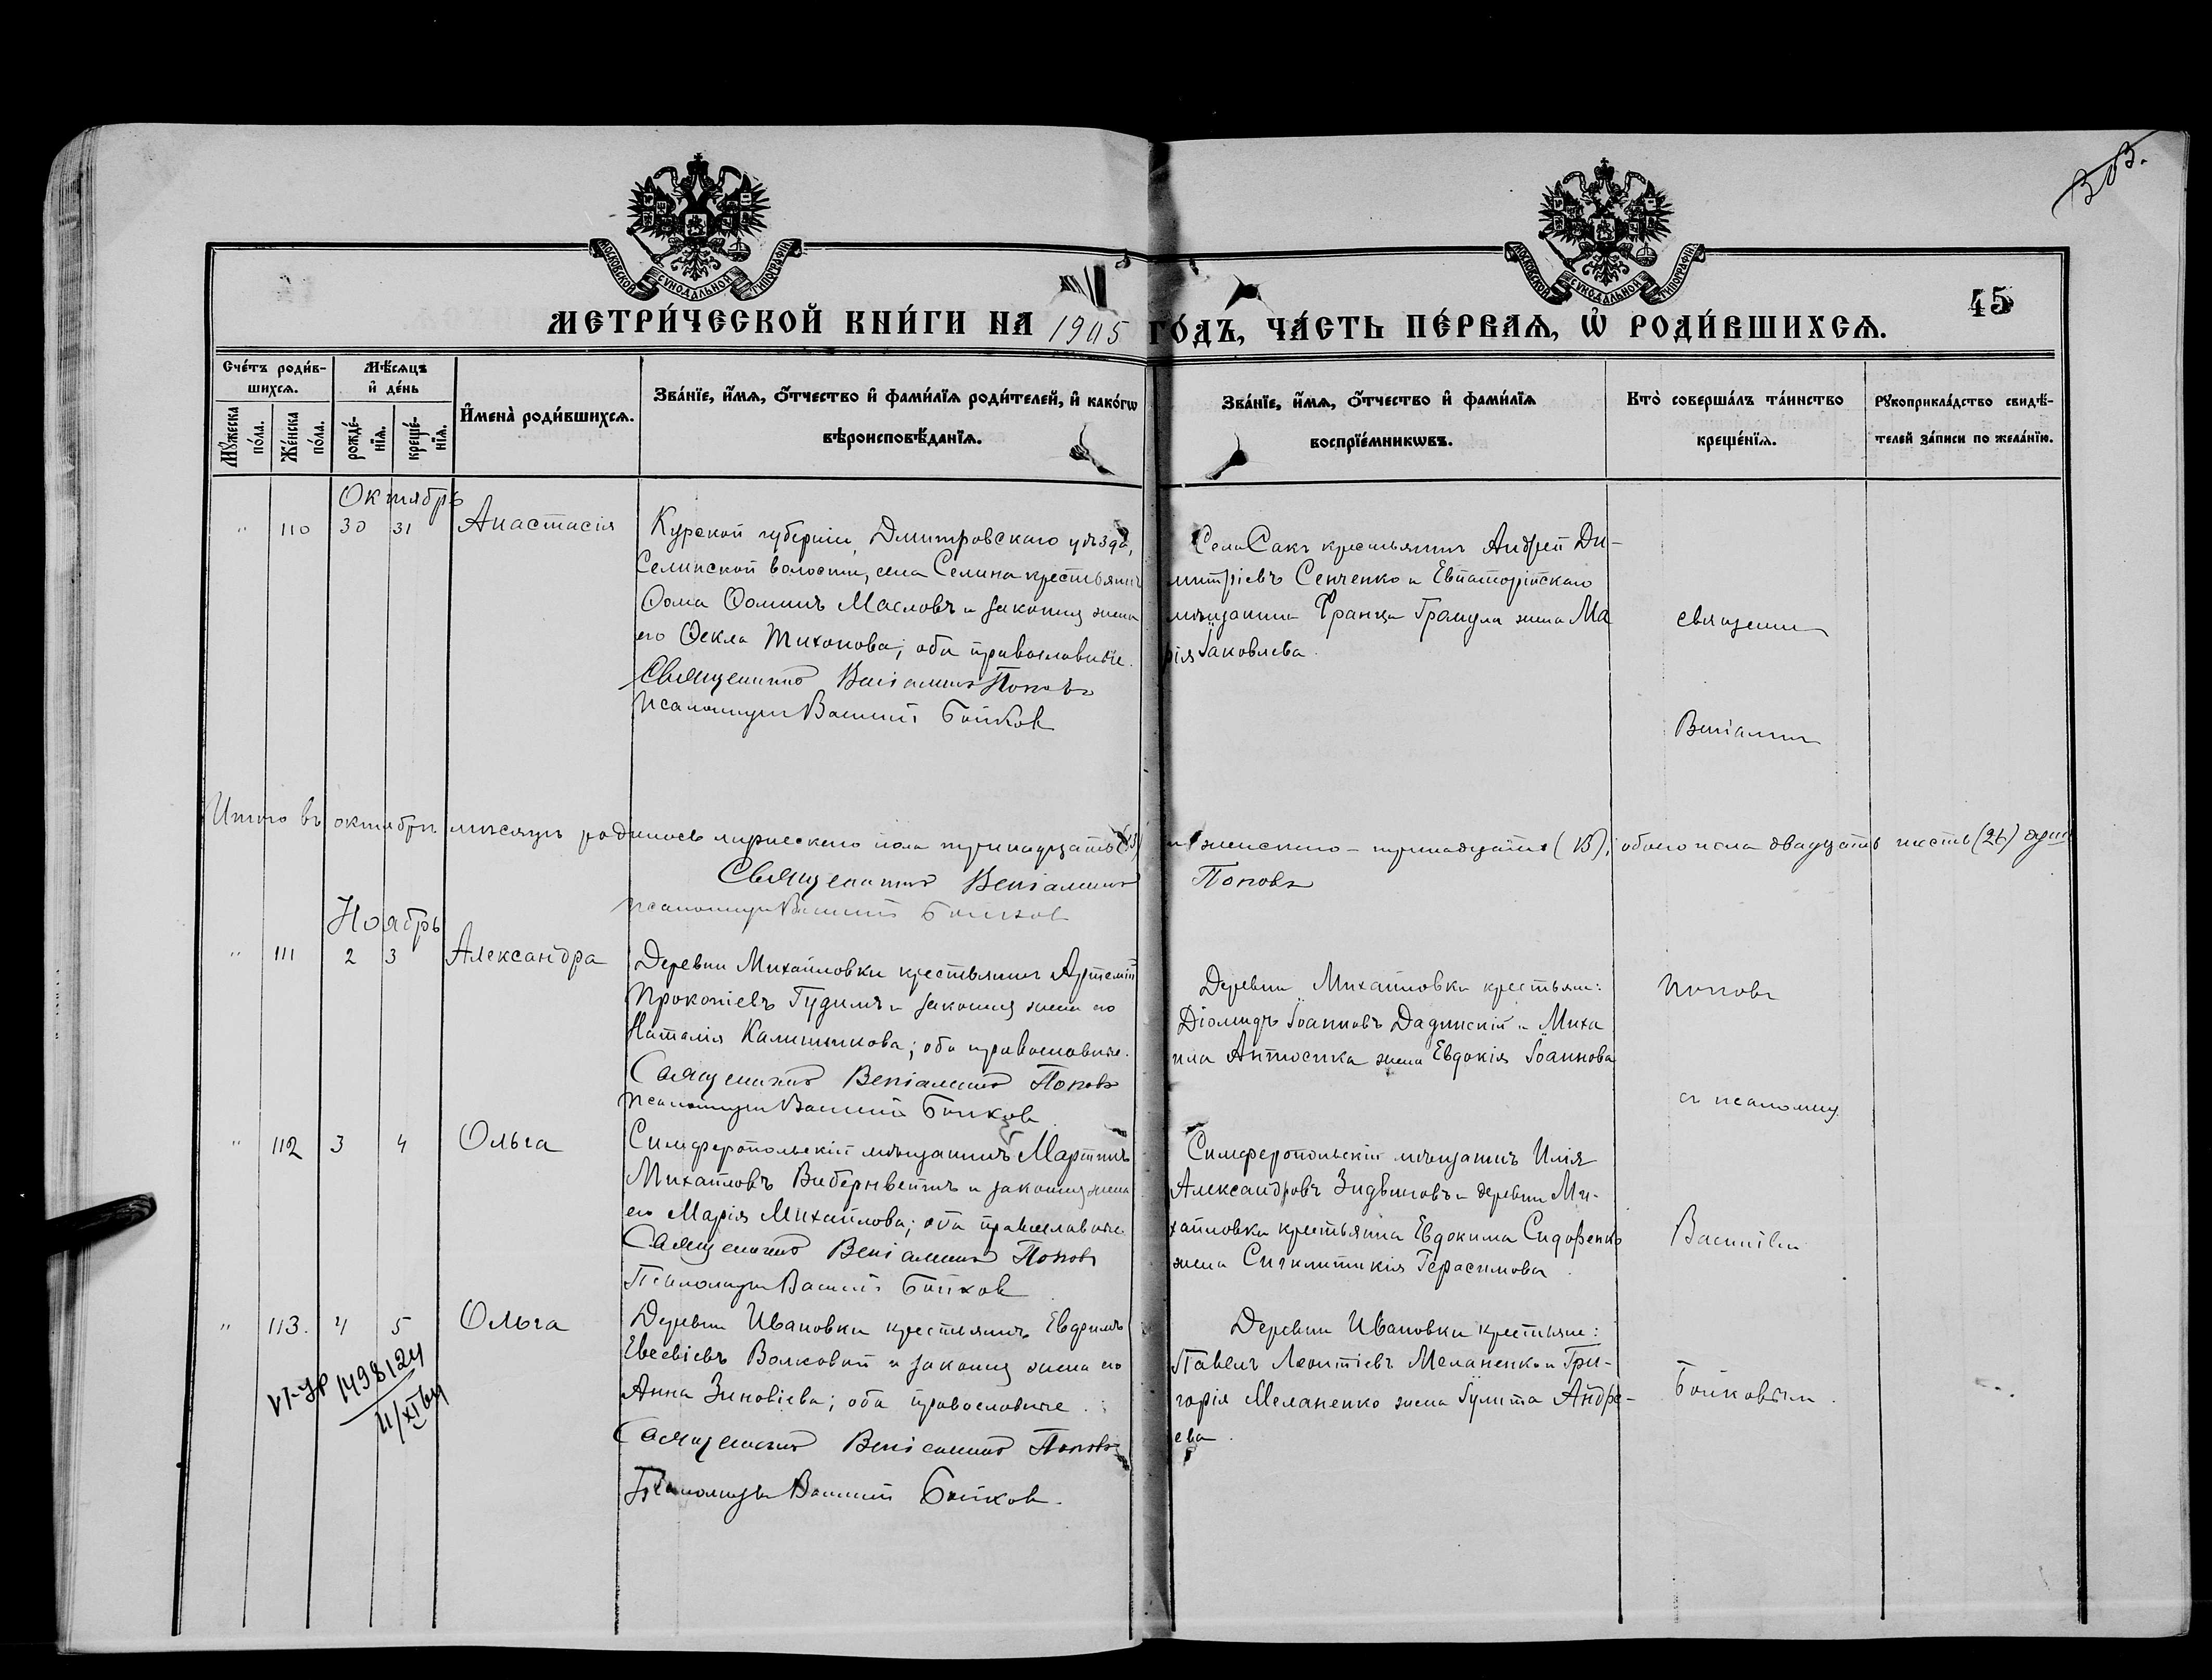 303.
МОСКОВСКОЙ СѴНОДАЛЬНОЙ ТИПОГРАФІИ
МОСКОВСКОЙ СѴНОДАЛЬНОЙ ТИПОГРАФІИ
45
МЕТРИ́ЧЕСКОЙ КНИ́ГИ НА 1905 ГО́ДЪ, ЧА́СТЬ ПЕ́РВАЯ, Ѡ҆ РОДИ́ВШИХСѦ.
Сче́тъ роди́в-
шихся.
Мꙋ́жеска по́ла.
Же́нска по́ла.
Мѣ́сяцъ и҆ де́нь
рожде́-нїя.
креще́-нїя.
И҆мена̀ роди́вшихся.
Зва́нїе, и҆́мя, ѻ҆́тчество и҆ фами́лїя роди́телей, и҆ како́гѡ
вѣроисповѣ́данїя.
Зва́нїе, и҆́мя, ѻ҆́тчество и҆ фами́лїя
воспрїе́мникѡвъ.
Кто̀ соверша́лъ та́инство
креще́нїя.
Рꙋкоприкла́дство свидѣ́-
телей за́писи по жела́нїю.
Октябрь
" 110 30 31 Анастасія
Курской губерніи, Дмитровскаго уѣзда,
Селинской волости, села Селина крестьянинъ
Ѳома Ѳоминъ Масловъ и законная жена
его Ѳекла Тихонова; оба православные.
Священникъ Веніаминъ Поповъ
Псаломщикъ Василій Бойков
Села Сакъ крестьянинъ Андрей Ди-
митріевъ Сенченко и Евпаторійскаго
мѣщанина Франца Грамула жена Ма
рія Іаковлева.
священник
Веніамин
Итого въ октябрѣ мѣсяцѣ родилось мужескаго пола тринадцать (13) и женскаго – тринадцать (13); обоего пола двадцать шесть (26) душ
Священникъ Веніаминъ Поповъ
Псаломщик Василий Бойков
Ноябрь
" 111 2 3 Александра
Деревни Михайловки крестьянинъ Артемій
Прокопіевъ Гудимъ и законная жена его
Наталія Калинникова; оба православные.
Священникъ Веніаминъ Поповъ
Псаломщик Василий Бойков
Деревни Михайловки крестьяне:
Діомидъ Іоанновъ Дадинскій и Миха
ила Антосика жена Евдокія Іоаннова
Попов
с псаломщ.
" 112 3 4 Ольга
Симферопольскій мѣщанинъ Мартинъ
Михайловъ Виберивейтъ и законная жена
его Марія Михайлова; оба православные
Священникъ Веніаминъ Поповъ
Псаломщик Василій Бойков
Симферопольскій мѣщанинъ Илія
Александровъ Зидвиговъ и деревни Ми-
хайловки крестьянина Евдокима Сидоренко
жена Сигклитикія Герасимова.
Василіем
" 113. 4 5 Ольга
Деревни Ивановки крестьянинъ Евфимъ
Евсевіевъ Волковой и законная жена его
Анна Зиновіева; оба православные.
Священникъ Веніаминъ Поповъ
Псаломщик Василій Бойков.
Деревни Ивановки крестьяне:
Павелъ Леонтіевъ Меланенко и Гри-
горія Меланенко жена Іулита Андре-
ева.
Бойковым.
VI-УР 1498124
11/XI 64